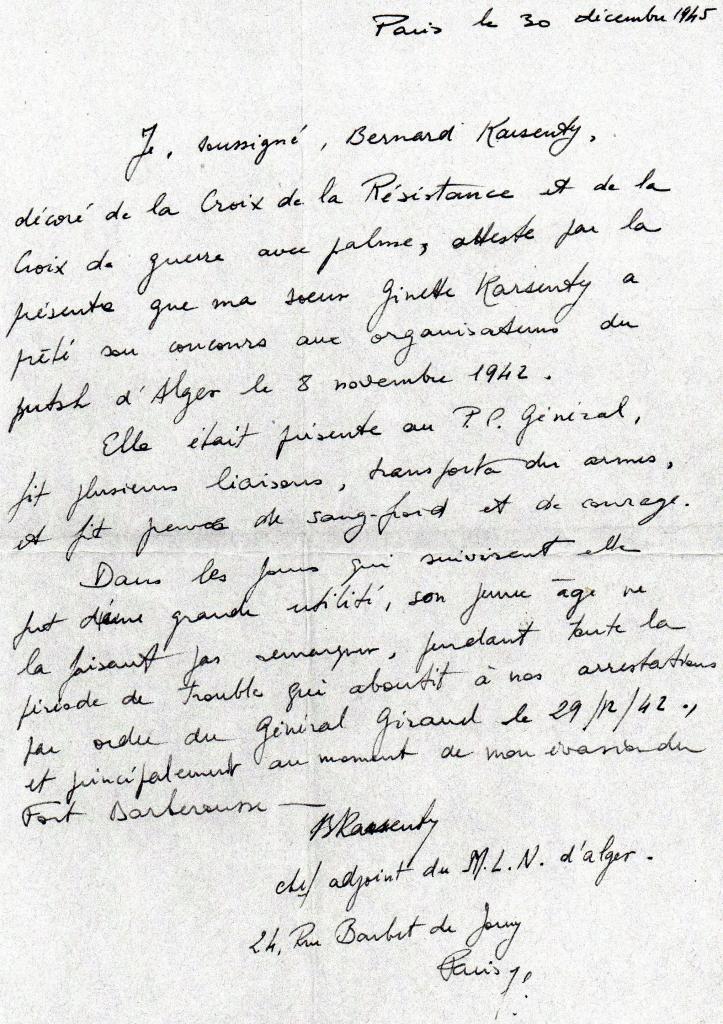 Paris le 30 décembre 1945
Je, soussigné, Bernard Karsenty,
décoré de la Croix de la Résistance et de la
Croix de guerre avec palme, atteste par la
présente que ma soeur Ginette Karsenty a
prêté son concours aux organisateurs du
putsh d'Alger le 8 novembre 1942.
Elle était présente au P.C. Général,
fit plusieurs liaisons, transporta des armes,
et fit preuve de sang-froid et de courage.
Dans les jours qui suivirent elle
fut d'une grande utilité, son jeune âge ne
la faisant pas remarquer, pendant toute la
période de trouble qui aboutit à nos arrestations
par ordre du Général Giraud le 29/12/42.,
et principalement au moment de mon évasion du
Fort Barberousse —
BKarsenty
chef adjoint du M.L.N. d'alger.
24, Rue Barbet de Jouy
Paris 7.